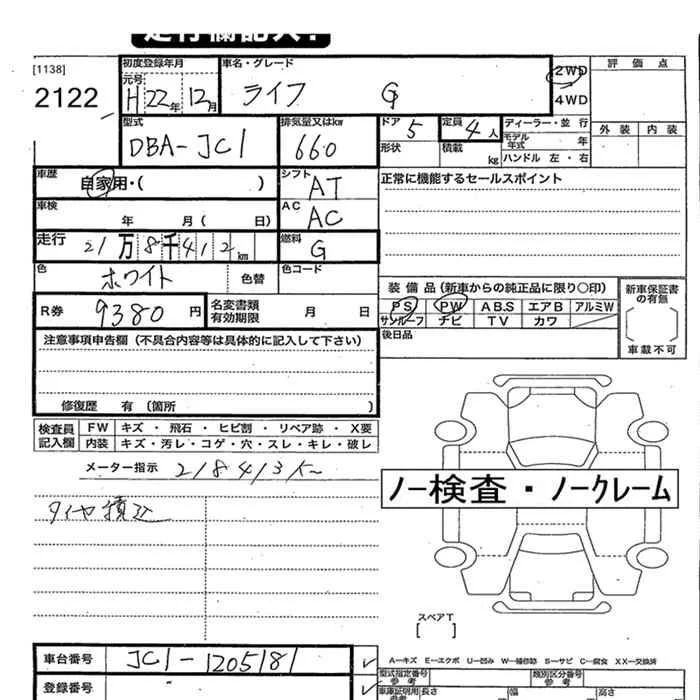 走行欄記入!
[1138]
2122
初度登録年月
元号
H 22年 12月
車名・グレード
ライフ G
2WD
4WD
評価点
外装 内装
型式
DBA-JC1
排気量又はkw
660
ドア 5
形状
定員 4人
積載 kg
ディーラー・並行
モデル年式 年
ハンドル 左・右
車歴
自家用・( )
シフト
AT
正常に機能するセールスポイント
車検
年 月( 日)
AC
AC
走行
21万8千412km
燃料
G
色
ホワイト
色替
色コード
装備品(新車からの純正品に限り〇印)
PS PW A.B.S エアB アルミW
サンルーフ ナビ TV カワ
新車保証書の有無
[ ]
車載不可
R券
9380円
名変書類有効期限 月 日
後日品
注意事項申告欄(不具合内容等は具体的に記入して下さい)
修復歴 有〔箇所 〕
検査員記入欄
FW キズ・飛石・ヒビ割・リペア跡・X要
内装 キズ・汚レ・コゲ・穴・スレ・キレ・破レ
メーター指示 218413K
ノー検査・ノークレーム
タイヤ積込
スペアT
[ ]
車台番号
JC1-1205181
登録番号
A−キズ E−エクボ U−凹み W−補修跡 S−サビ C−腐食 XX−交換済
型式指定番号
参考
類別区分番号
参考
車庫証明用
参考
長さ 幅 高さ